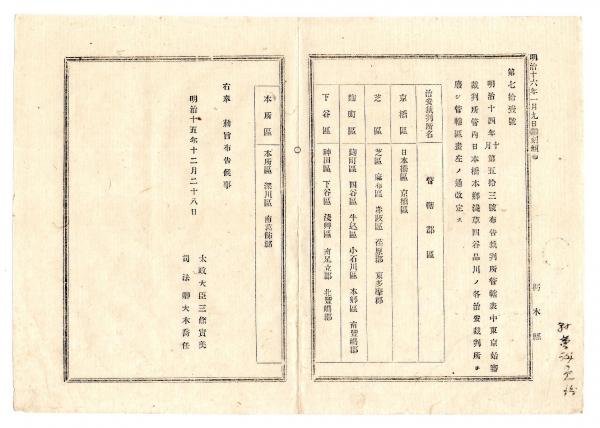 明治十六年一月九日
栃木縣
第七拾壹號
明治十四年十月第五十三號布告裁判所管轄表中東京始審
裁判所管内日本橋本郷淺草四谷品川ノ各治安裁判所ヲ
廢シ管轄區畫左ノ通改定ス
治安裁判所名 管轄郡區
京橋區 日本橋區 京橋區
芝區 芝區 麻布區 赤坂區 荏原郡 東多摩郡
麴町區 麴町區 四谷區 牛込區 小石川區 本郷區 南豐嶋郡
下谷區 神田區 下谷區 淺草區 南足立郡 北豐嶋郡
本所區 本所區 深川區 南葛飾郡
右奉 勅旨布告候事
明治十五年十二月二十八日
太政大臣三條實美
司法卿大木喬任